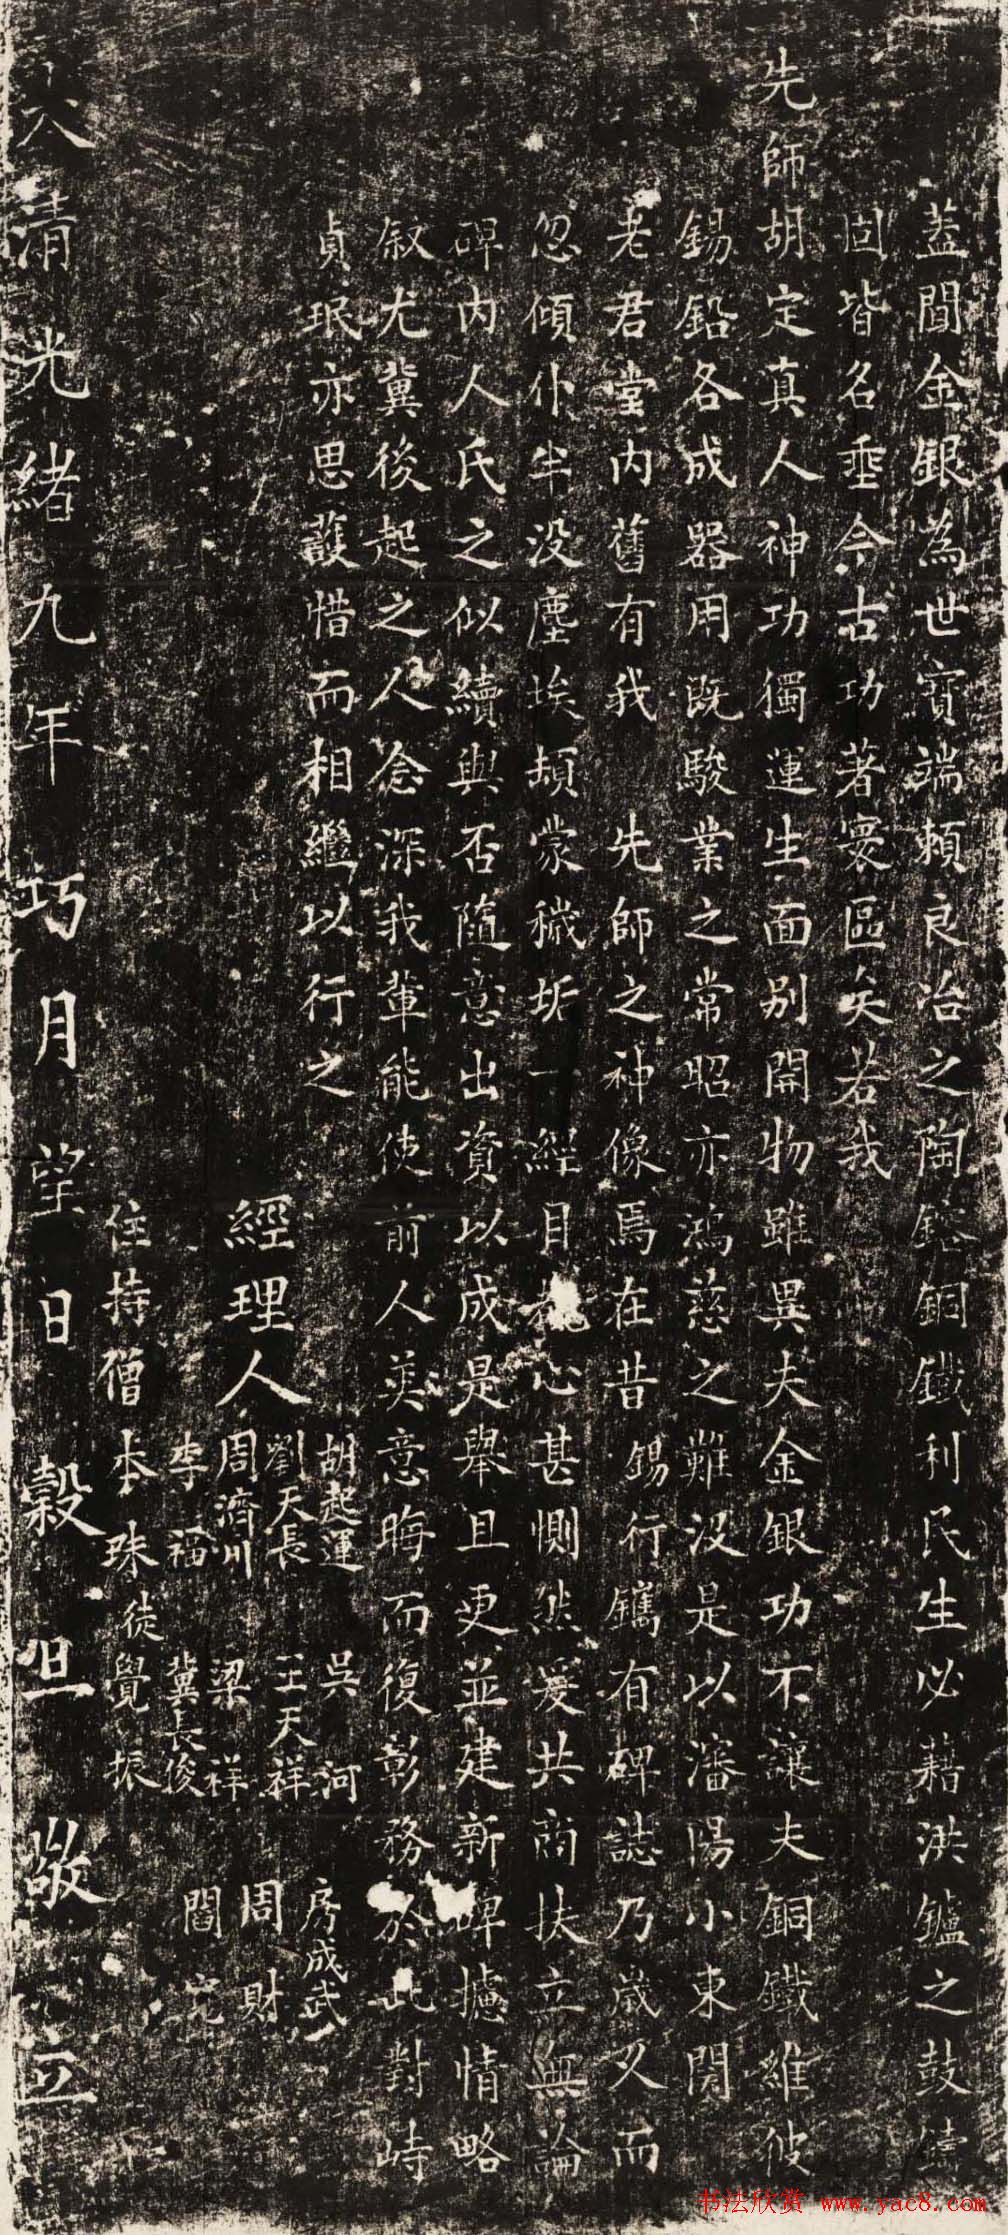 蓋聞金銀為世寶端賴良冶之陶鎔銅鐵利民生必藉洪鑪之鼓鑄
固皆名垂今古功著寰區矣若我
先師胡定真人神功獨運生面别開物雖異夫金銀功不讓夫銅鐵維彼
錫鉛各成器用既駿業之常昭亦鴻慈之難没是以瀋陽小東関
老君堂内舊有我先師之神像焉在昔錫行鐫有碑誌乃歲久而
忽傾仆半没塵埃頓蒙穢垢一經目心甚惻然爰共商扶立無論
碑内人氏之似續與否隨意出資以成是舉且更並建新碑攄情略
叙尤冀後起之人念深我輩能使前人美意晦而復彰務於此對峙
貞珉亦思護惜而相繼以行之
經理人
胡起運 吳河 房成武
劉天長 王天祥 周財
周濟川 梁祥
李福 冀長俊 閻
住持僧本珠徒覺振
大清光緒九年巧月望日穀旦敬立
书法欣赏 www.yac8.com